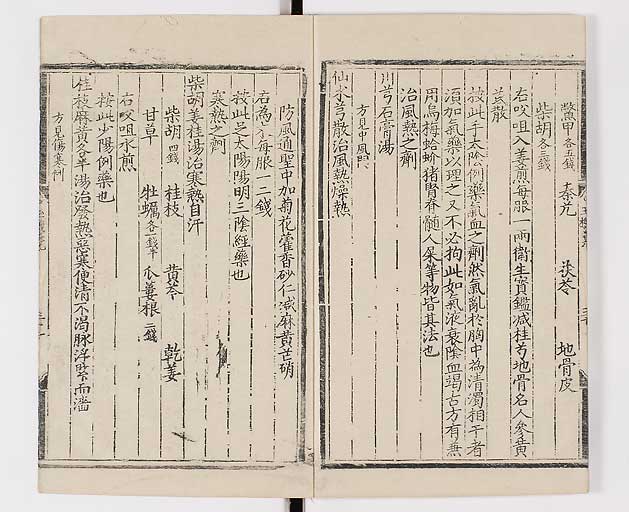 鱉甲各五錢　秦艽　茯苓　地骨皮
柴胡各三錢
右㕮咀入姜煎每服一兩衛生寳鑑減桂芍地骨名人參黄
芪散
按此手太陰例藥氣血之劑然氣亂於胸中為清濁相干者
須加氣藥以理之又不必拘此如氣液衰陰血竭古方有兼
用烏梅蛤蚧猪腎脊髓人柴等物皆其法也
治風熱之劑
川芎石膏湯
方見中風門
仙朮芎散治風熱燥熱
防風通聖中加菊花藿香砂仁减麻黄芒硝
右為末每服一二錢
按此足太陽陽明三陰經藥也
寒熱之劑
柴胡姜桂湯治寒熱自汗
柴胡四錢　桂枝　黄芩　乾姜
甘草　牡蠣各一錢半　瓜蔞根二錢
右㕮咀水煎
按此少陽例藥也
桂枝麻黄各半湯治發熱惡寒便清不渴脉浮緊而濇
方見傷寒例